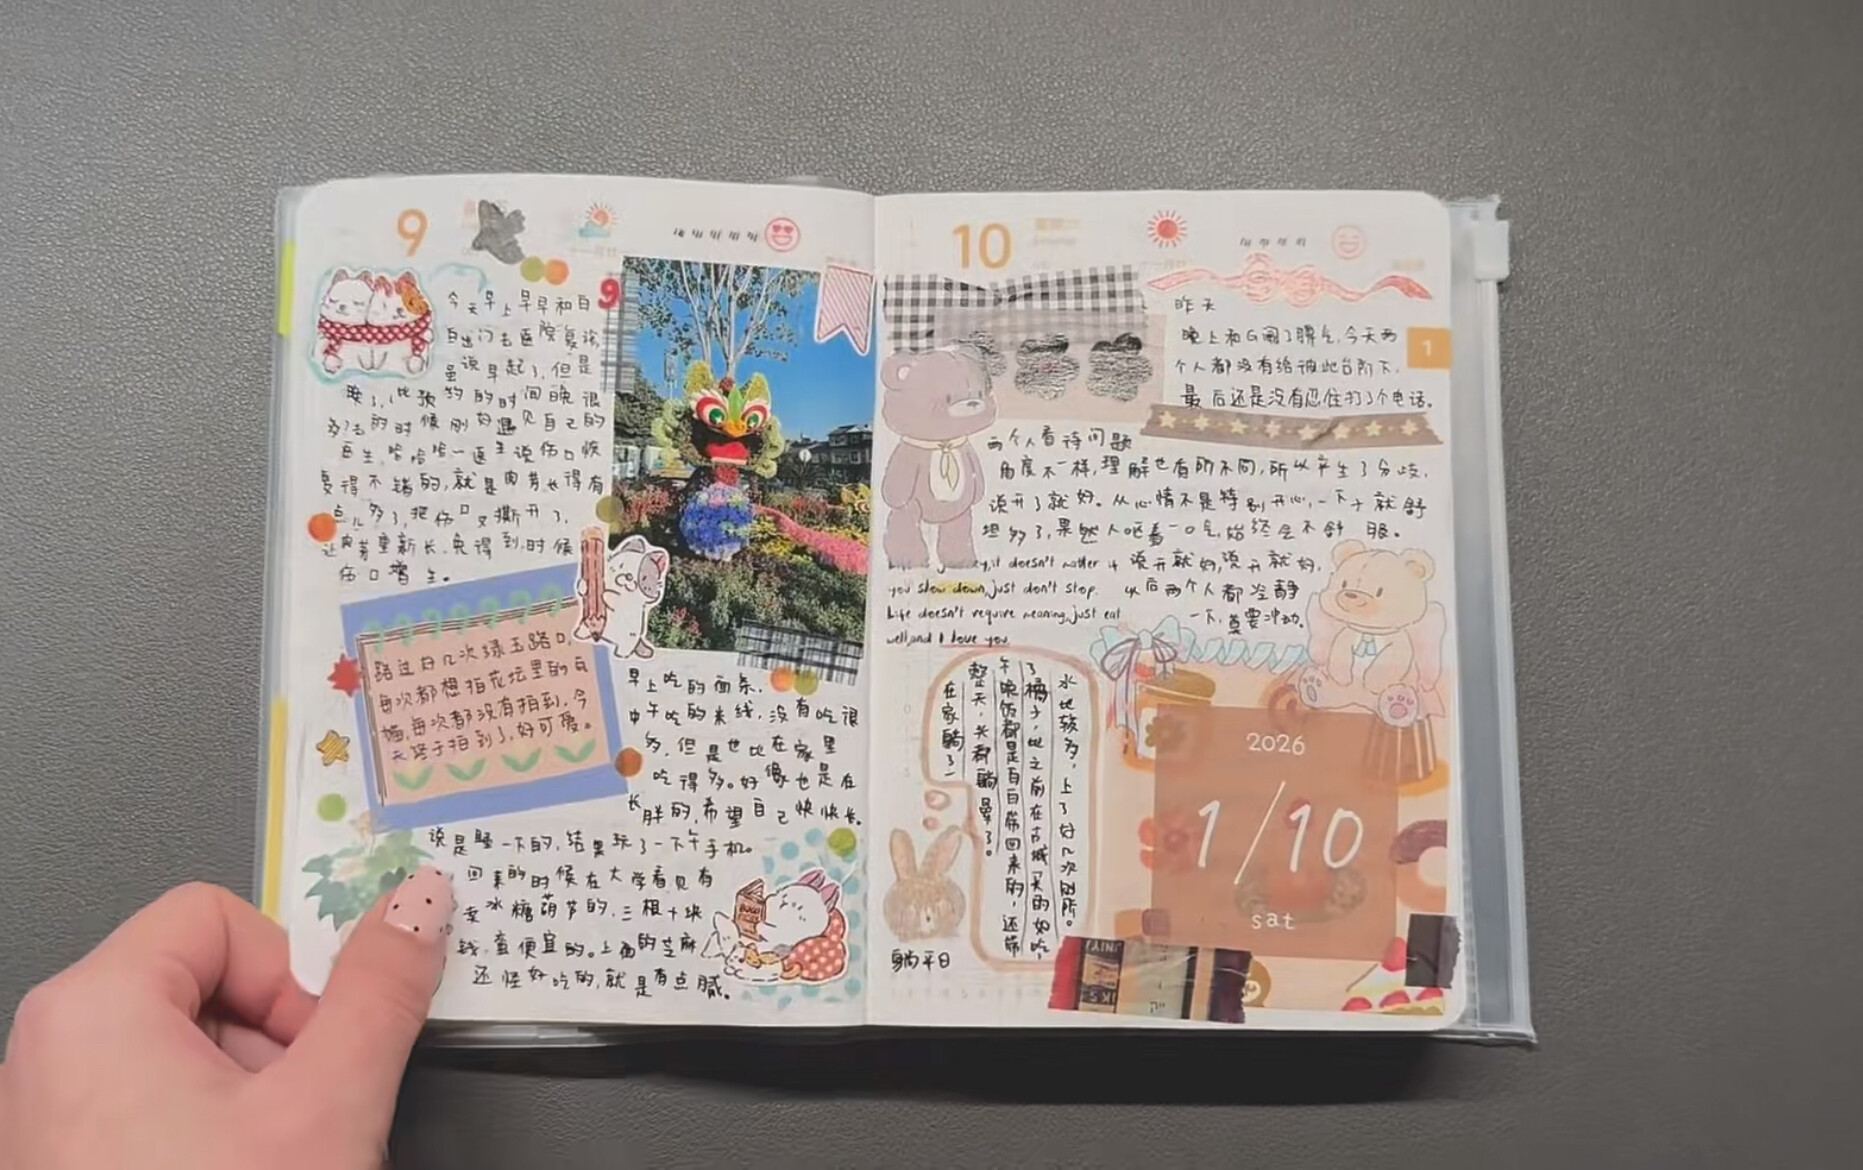 9
今天早上早早和白
白出门去医院复诊
虽说早起了,但是
晚了,比预约的时间晚很
多,去的时候刚好遇见自己的
医生,哈哈哈一医生说伤口恢
复得不错的,就是肉芽长得有
点儿多了,把伤口又撕开了,
让肉芽重新长,免得到时候
伤口增生。
9
路过好几次绿玉路口,
每次都想拍花坛里的
每次都没有拍到,今
天终于拍到了,好可爱。
早上吃的面条,
中午吃的米线,没有吃很
多,但是也比在家里
吃得多。好像也是在
长胖的,希望自己快快长。
说是睡一下的,结果玩了一下午手机。
回来的时候在大学看见有
卖冰糖葫芦的,三根十块
钱,蛮便宜的。上面的芝麻
还怪好吃的,就是有点腻。
10
昨天
晚上和G闹了脾气,今天两
个人都没有给彼此台阶下,
最后还是没有忍住打了个电话。
1
两个人看待问题
角度不一样,理解也有所不同,所以产生了分歧,
说开了就好。从心情不是特别开心,一下子就舒
坦多了,果然人呕着一口气,始终会不舒服。
说开就好,说开就好,
以后两个人都冷静
一下,莫要冲动。
it doesn't matter if
you slow down, just don't stop.
Life doesn't require meaning, just eat
well, and I love you.
水比较多,上了好几次厕所。
了橘子,比之前在古城买的好吃,
午晚饭都是白白带回来的,还带
整天,头都躺晕了。
在家躺了一
躺平日
2026
1/10
sat